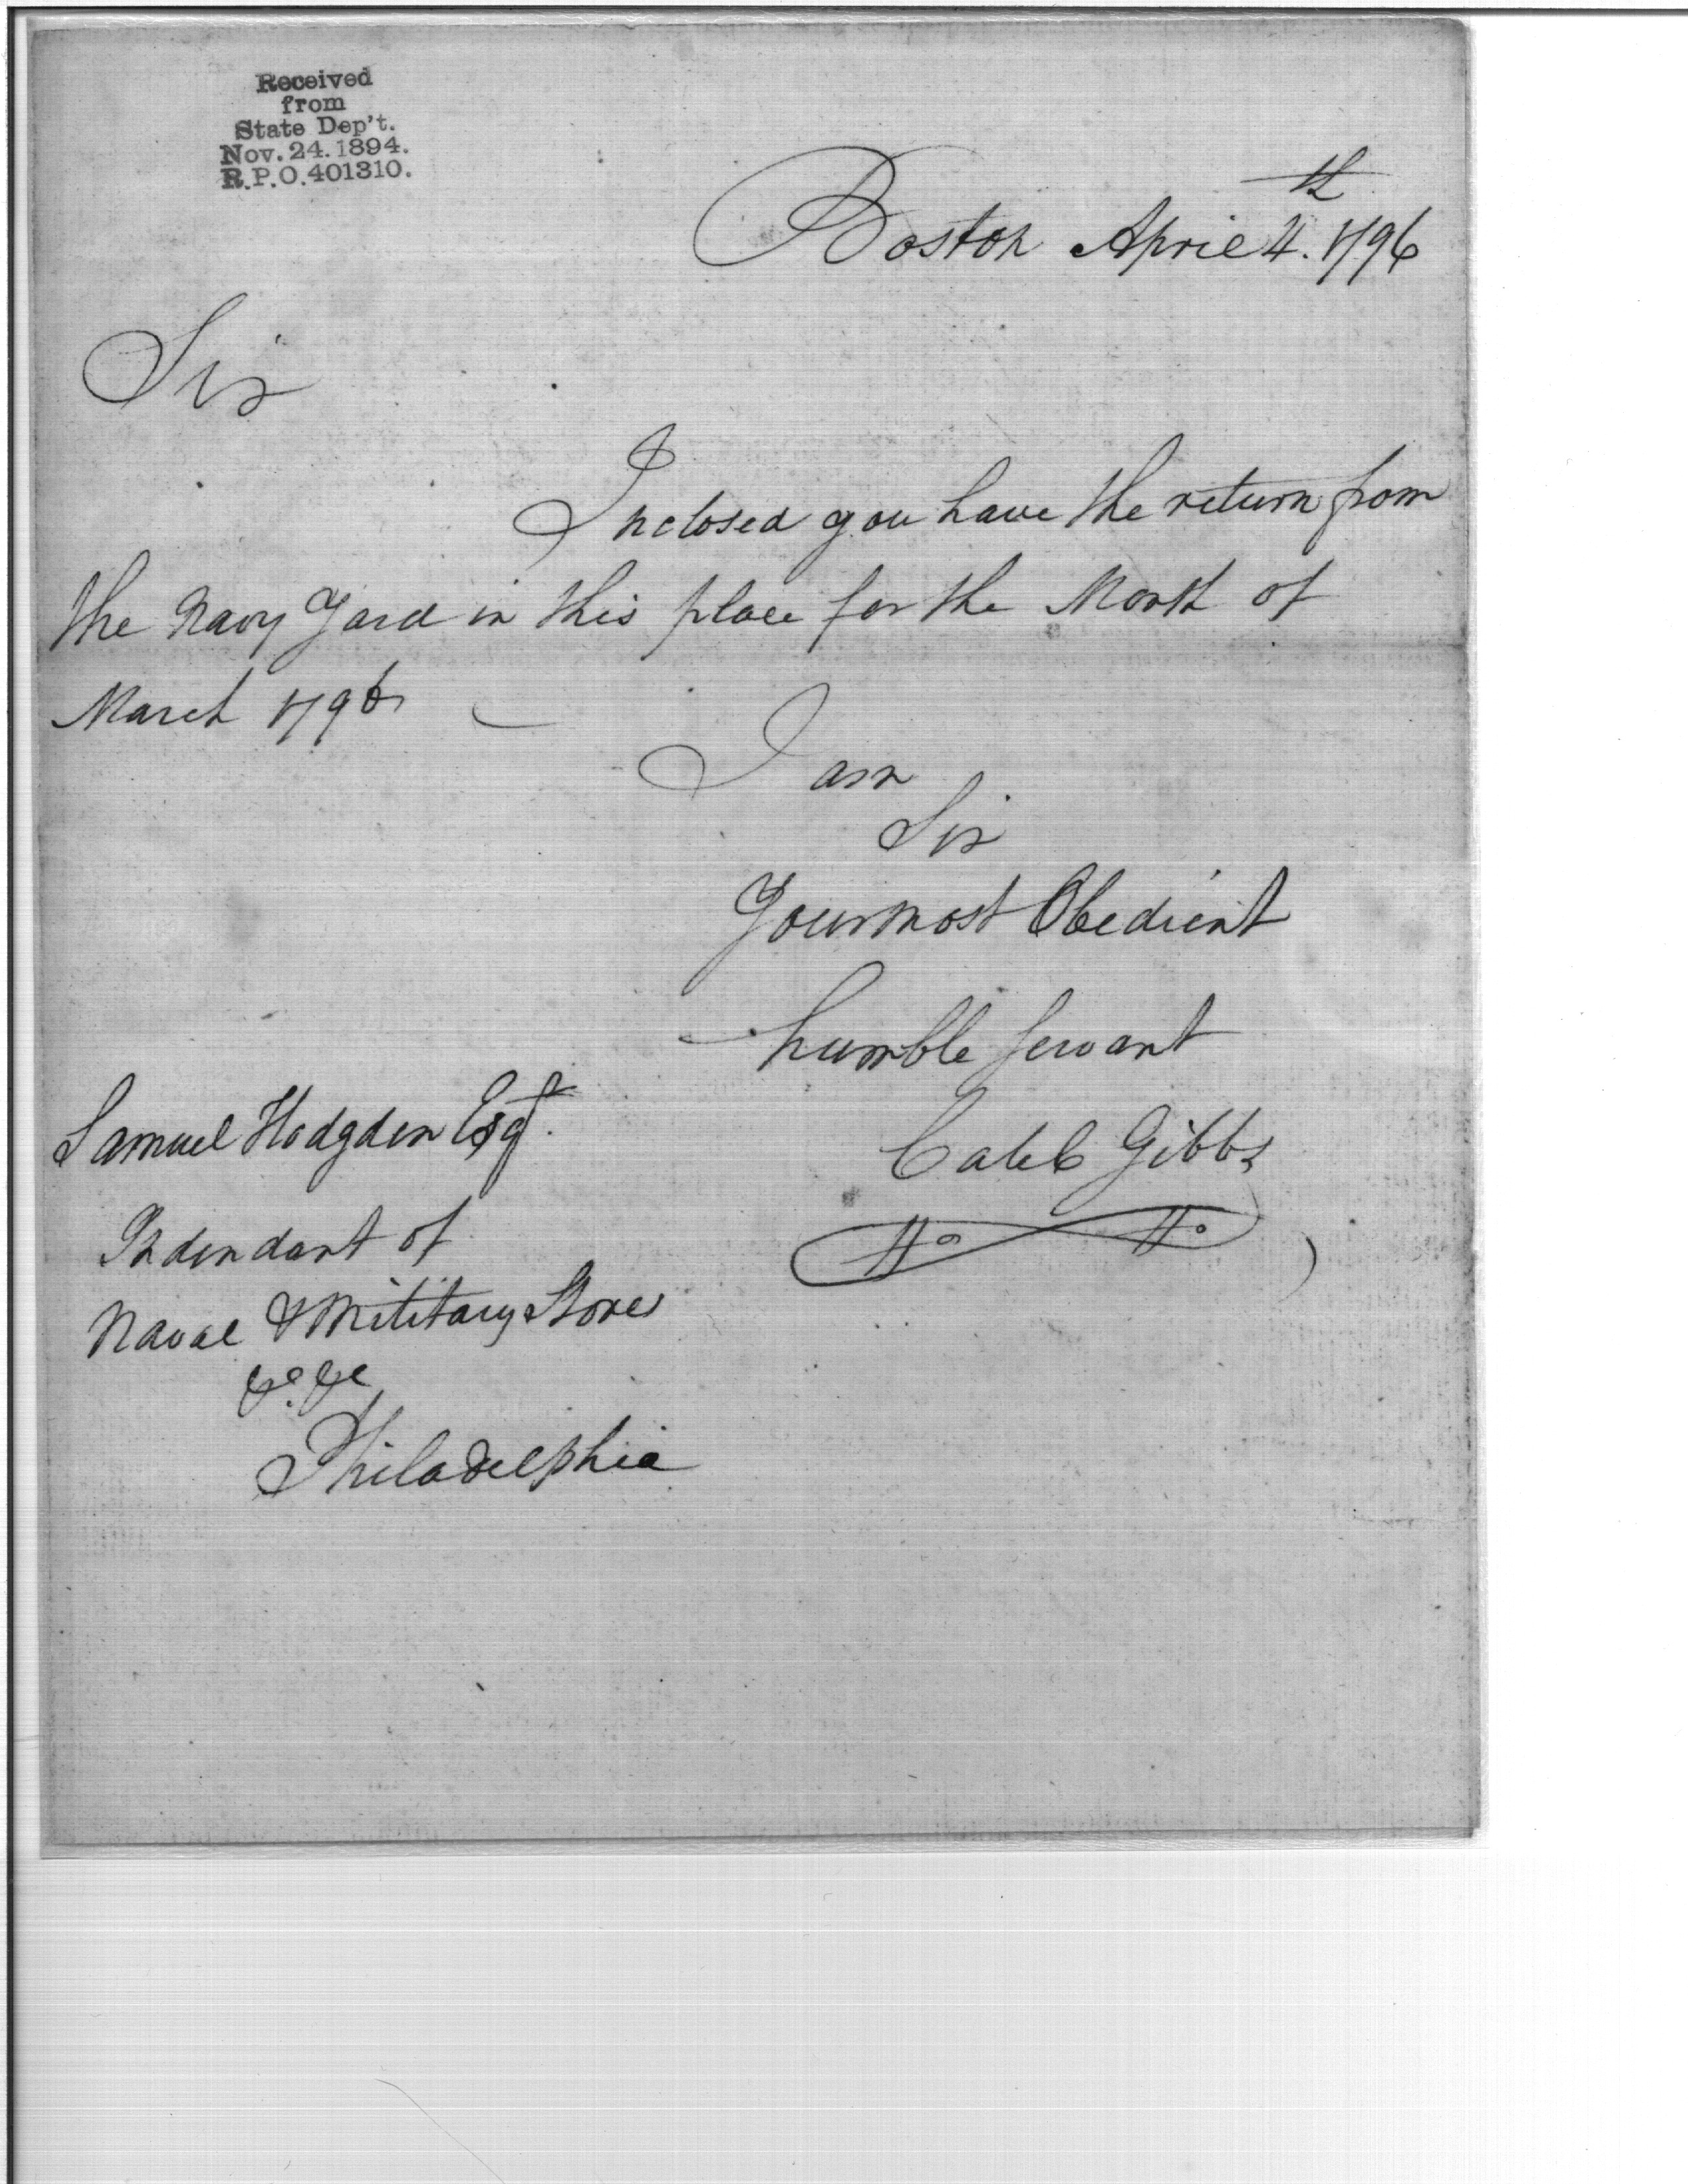 Received
from
State Dep't.
Nov. 24. 1894.
R.P.O. 401310.
Boston April 4.th 1796
Sir
Inclosed you have the return from
the Navy Yard in this place for the Month of
March 1796
I am
Sir
Your most Obedient
humble Servant
Caleb Gibbs
Samuel Hodgden Esqr.
Indendant of
Naval & Military Stores
&c. &c
Philadelphia